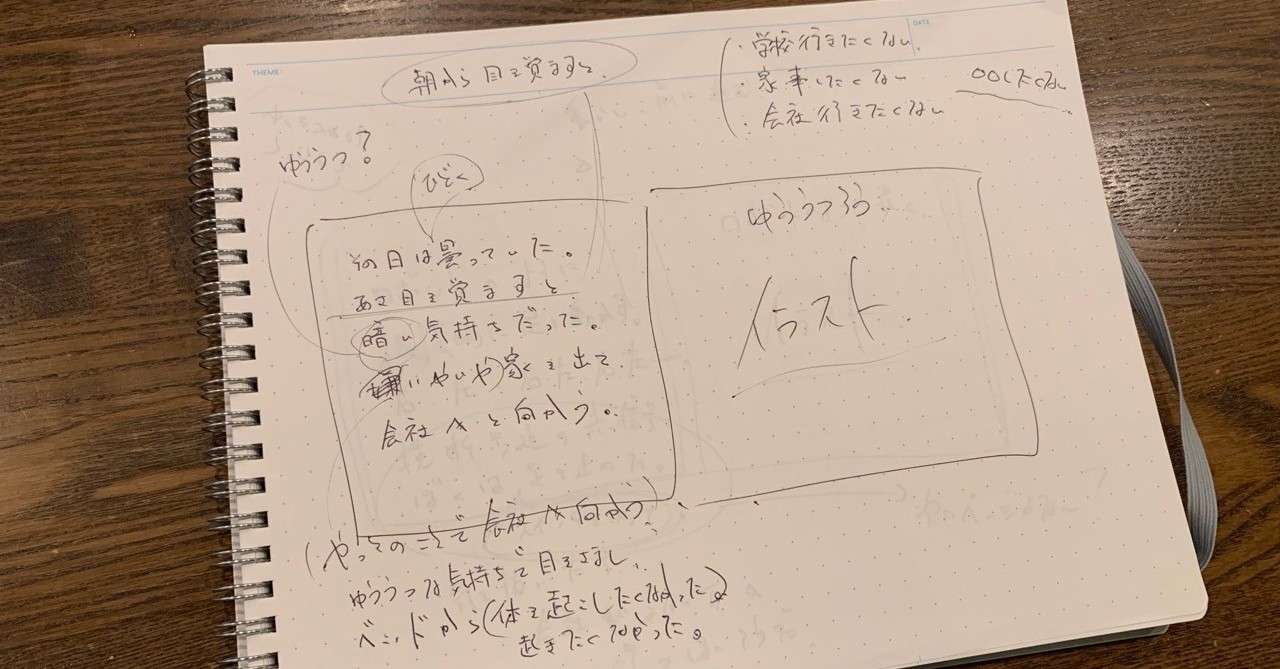 THEME:
DATE
朝から目を覚ますと、
・学校行きたくない、
・家事したくない
・会社行きたくない
○○したくない
ゆううつ?
ひどく
その日は曇っていた。
あさ目を覚ますと
暗い気持ちだった。
いやいや家を出て
会社へと向かう。
ゆううつ
イラスト
やっとのことで会社へ向かう
ゆううつな気持ちで目をさまし、
ベッドから(体を起こしたくなかった。)
起きたくなかった。